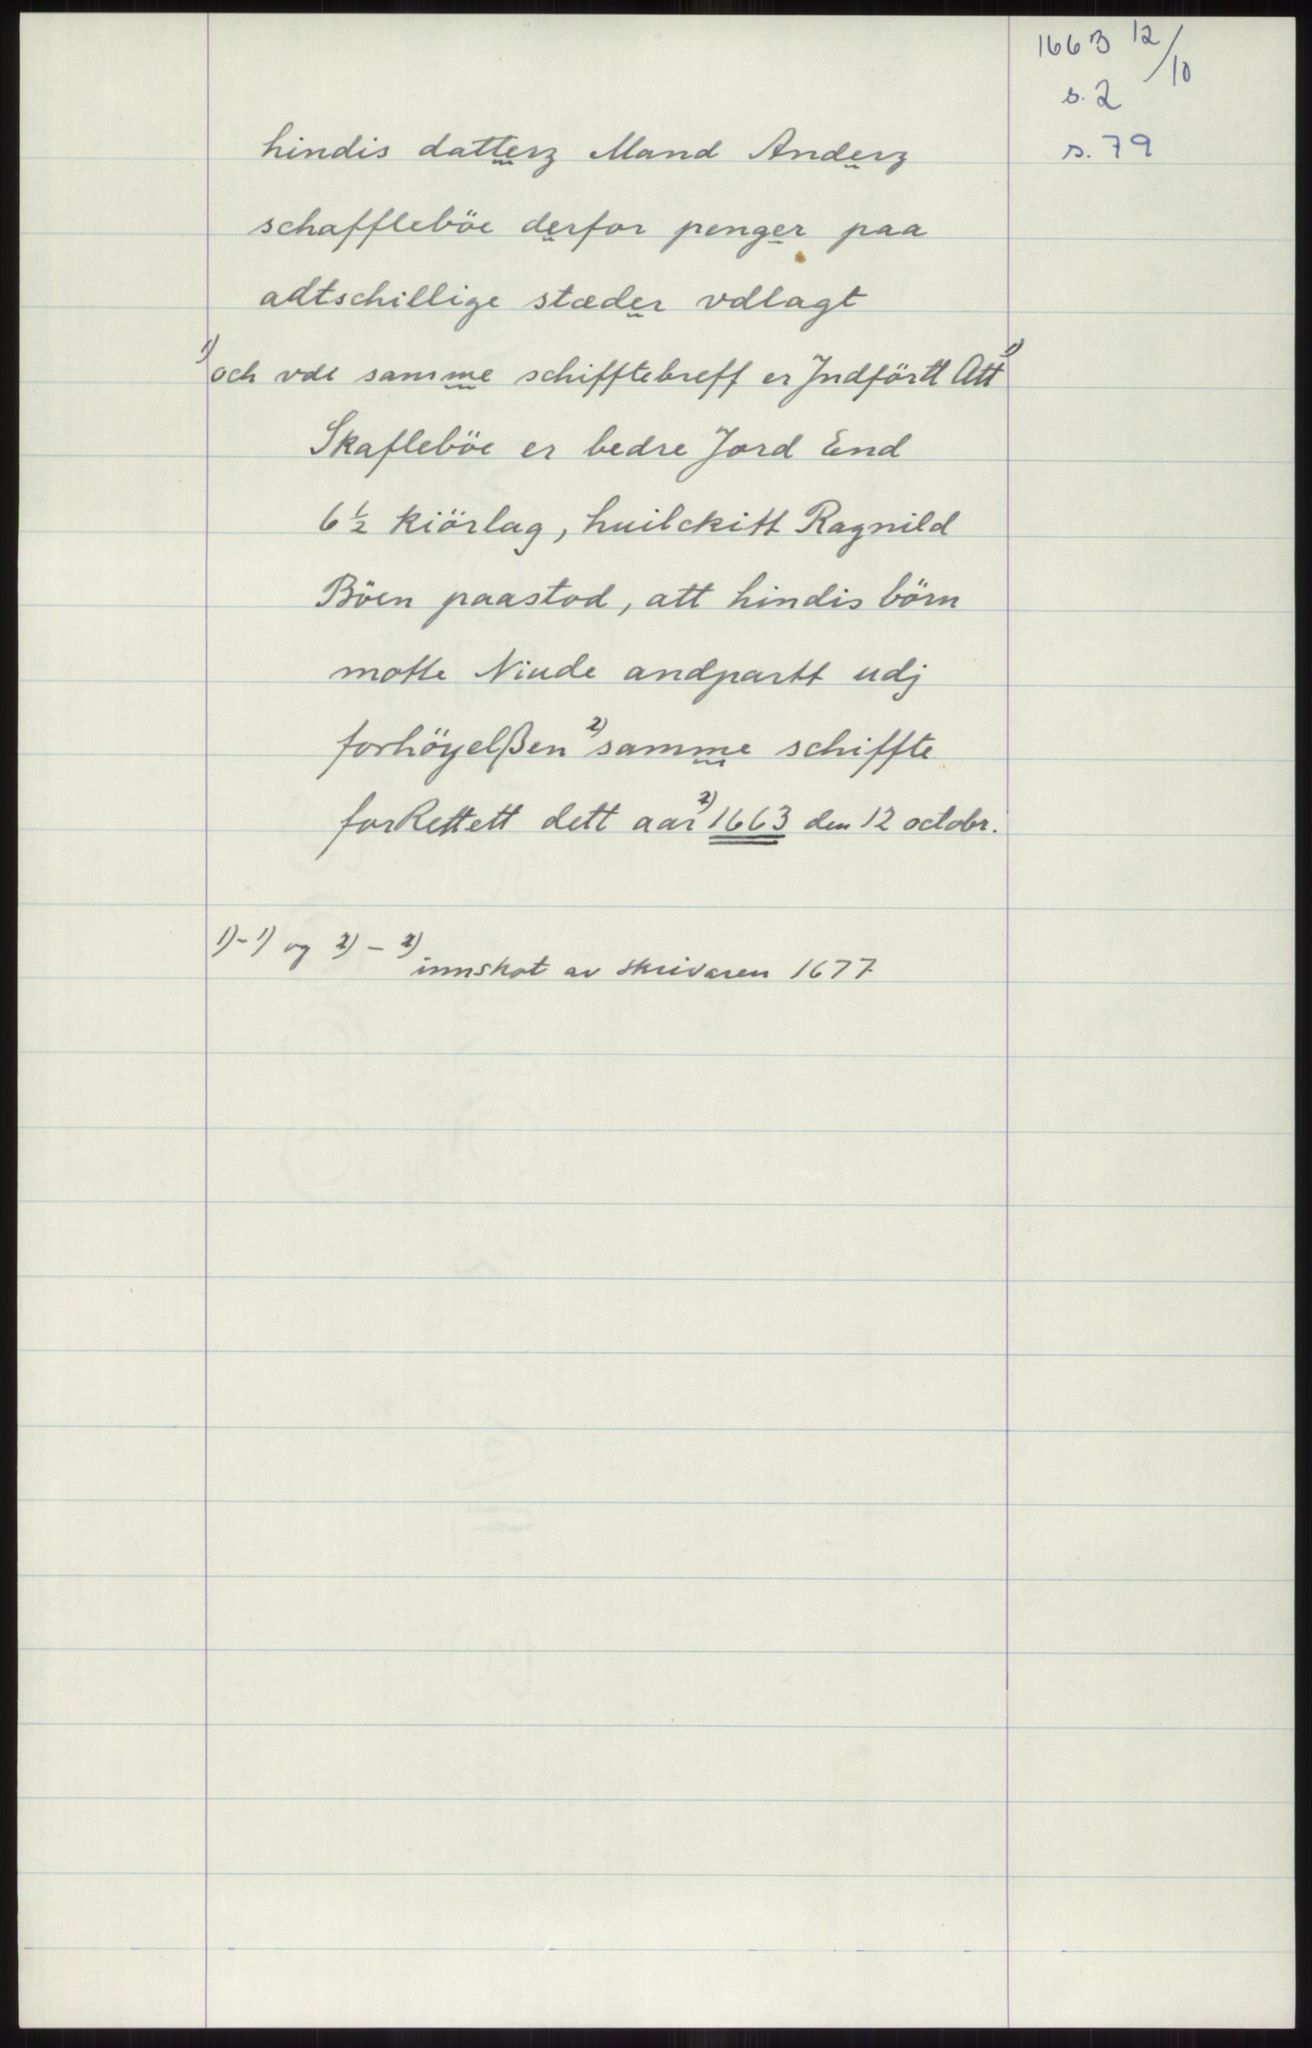 1663 12/10
s. 2
s. 79
hindis datterz Mand Anderz
schaffleböe derfor penger paa
adtschillige stæder vdlagt
1) och vdi samme schifftebreff er Jndförtt Att 1)
Skafleböe er bedre Jord End
6 1/2 kiörlag, huilckitt Ragnild
Böen paastod, att hindis börn
motte Niude andpartt udj
forhöyelßen 2) samme schiffte
forRettett dett aar 2) 1663 den 12 octobr.
1)-1) og 2)-2)
innskot av skrivaren 1677.